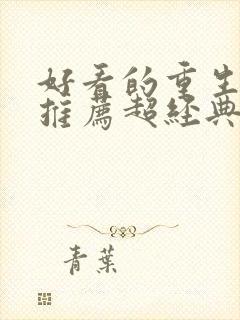 好看的重生
推薦超經典
青葉